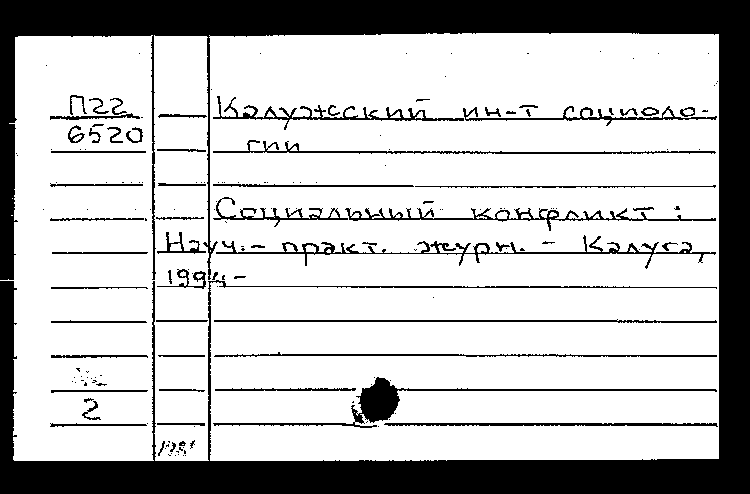 П22
6520
Калужский ин-т социоло-
гии
Социальный конфликт :
Науч.- практ. журн. - Калуга,
1994-
2